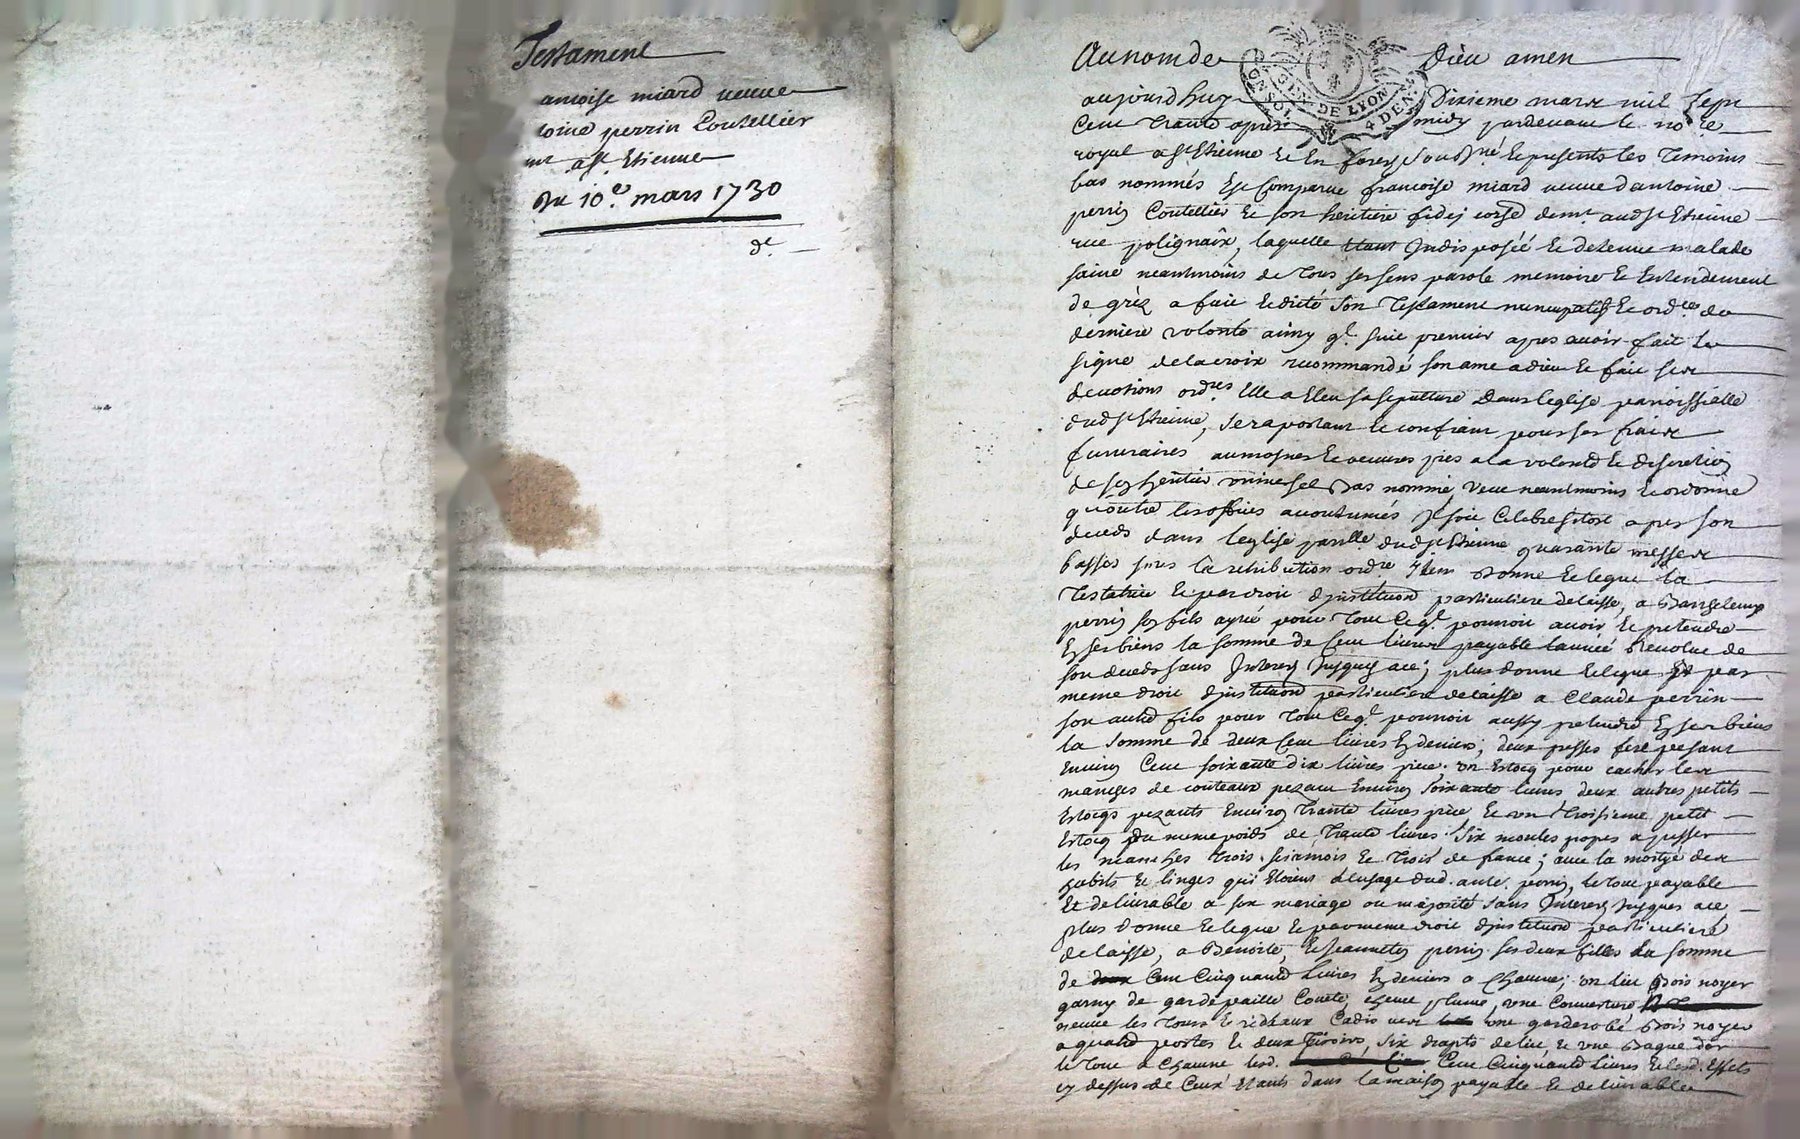 Testament
ancoise miard veuve
toine perrin Coutellier
a st. Etienne
Du 10e. mars 1730
de.
Au nom de Dieu amen
GEN. DE LYON
4 DEN.
aujourdhuy Dixieme mars mil sept
Cent trante apres midy pardevant le nore
royal a st Etienne Et En forez soussné Et presents les Temoins
bas nommés Est Comparue francoise miard veuve d'antoine
perrin Coutellier Et son heritiere fidej demt audst Etienne
rue polignaix, laquelle Indisposée Et detenue malade
saine neantmoins de Tous ses sens parole memoire Et Entendement
de grèz a fait Et dicté son Testament nuncupatif Et ordce de
derniere volonté ainsy qt. suit premier apres avoir fait le
signe de la croix recommandé son ame a dieu Et fait ses
devotions ordres Elle a Eleu sa sepulture Dans leglise parroissielle
dudst Etienne, se raportant Et confiant pour ses fraix
funeraires aumosnes Et oeuvres pies a la volonté Et discretion
de son heritier universel Bas nommé, veut neantmoins Et ordonne
qu'outre les offices accoutumés Il soit Celebré sitost apres son
deceds dans leglise parlle. dudst Etienne quarante messes
basses sous la retribution ordre Item Donne Et legue la
Testatrice Et par droit d'jnstitution particuliere delaisse, a
perrin son fils ayné pour Tout Ce qt. pourroit avoir Et pretendre
En ses biens la somme de Cent livres payable l'année Revolue de
son deceds sans Interest Jusques a ce; plus donne Et legue Et par
meme droit d'jnstitution particuliere delaisse a Claude perrin
son autre fils pour Tout Ce qt. pourroit aussy pretendre En ses biens
la somme de deux Cent livres En deniers; deux presses fert pesant
Environ Cent soixante dix livres piece. un Estocq pour cacher les
manches de couteaux pezant Environ soixante livres deux autres petits
Estocqs pezants Environ Trante livres piece Et un troisieme petit
Estocq du meme poids de Trante livres. Six moules propes a presser
les manches trois siamois Et Trois de france; avec la moityé des
habits Et linges qui Etoient a l'usage dud. ante. perrin, le tout payable
Et delivrable a son mariage ou majorité sans Interest Jusques a ce
plus Donne Et legue Et par meme droit d'jnstitution particuliere
delaisse, a Benoite, Et Jeanneton perrin ses deux filles la somme
de Cent Cinquante livres En deniers a Chacune; un lict Bois noyer
garny de garde paille Couete, chevet plume, une Couverture
neuve les Tours Et rideaux Cadis vert une garderobe Bois noyer
a quatre portes Et deux Tiroirs, six drapts de lict Et une Bague d'or
le Tout a Chacune lesd. Cent Cinquante livres Et lesd. Effets
cy dessus de Ceux Etants dans la maison payable Et delivrables